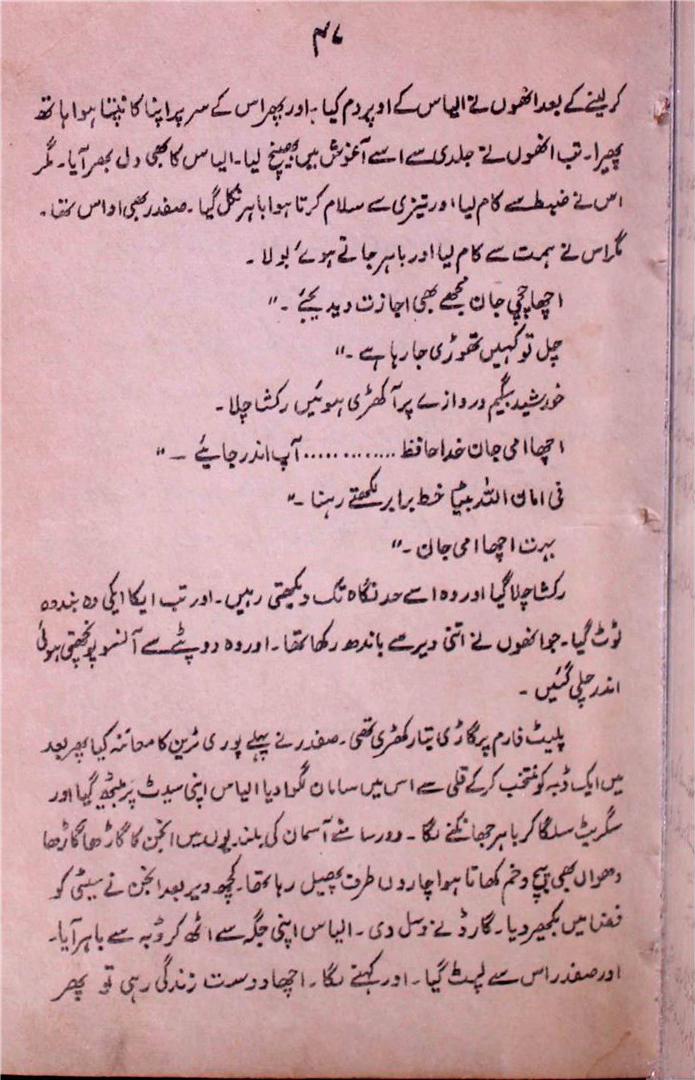 ۴۷
کر لینے کے بعد انھوں نے الیاس کے اوپر دم کیا۔ اور پھر اس کے سر پر اپنا کانپتا ہوا ہاتھ
پھیرا۔ تب انھوں نے جلدی سے اسے آغوش میں بھینچ لیا۔ الیاس کا بھی دل بھر آیا۔ مگر
اس نے ضبط سے کام لیا اور تیزی سے سلام کرتا ہوا باہر نکل گیا۔ صفدر بھی اداس تھا۔
مگر اس نے ہمت سے کام لیا اور باہر جاتے ہوئے بولا۔
اچھا چچی جان مجھے بھی اجازت دیدیجئے۔"
چل تو کہیں تھوڑی جا رہا ہے۔"
خورشید بیگم دروازے پر آ کھڑی ہوئیں رکشا چلا۔
اچھا امی جان خدا حافظ ............. آپ اندر جایئے ۔"
فی امان اللہ بیٹا خط برابر لکھتے رہنا۔"
بہت اچھا امی جان۔"
رکشا چلا گیا اور وہ اسے حد نگاہ تک دیکھتی رہیں۔ اور تب ایکا ایکی وہ بندہ
ٹوٹ گیا۔ جو انھوں نے اتنی دیر سے باندھ رکھا تھا۔ اور وہ دوپٹے سے آنسو پونچھتی ہوئی
اندر چلی گئیں۔
پلیٹ فارم پر گاڑی تیار کھڑی تھی۔ صفدر نے پہلے پوری ٹرین کا معائنہ کیا پھر بعد
میں ایک ڈبہ کو منتخب کر کے قلی سے اس میں سامان لگوا دیا الیاس اپنی سیٹ پر بیٹھ گیا اور
سگریٹ سلگا کر باہر جھانکنے لگا۔ دور سامنے آسمان کی بلندیوں میں انجن کا گاڑھا گاڑھا
دھواں بھی پیچ و خم کھاتا ہوا چاروں طرف پھیل رہا تھا۔ کچھ دیر بعد انجن نے سیٹی کو
فضا میں بکھیر دیا۔ گارڈ نے وسل دی۔ الیاس اپنی جگہ سے اٹھ کر ڈبہ سے باہر آیا۔
اور صفدر اس سے لپٹ گیا۔ اور کہنے لگا۔ اچھا دوست زندگی رہی تو پھر